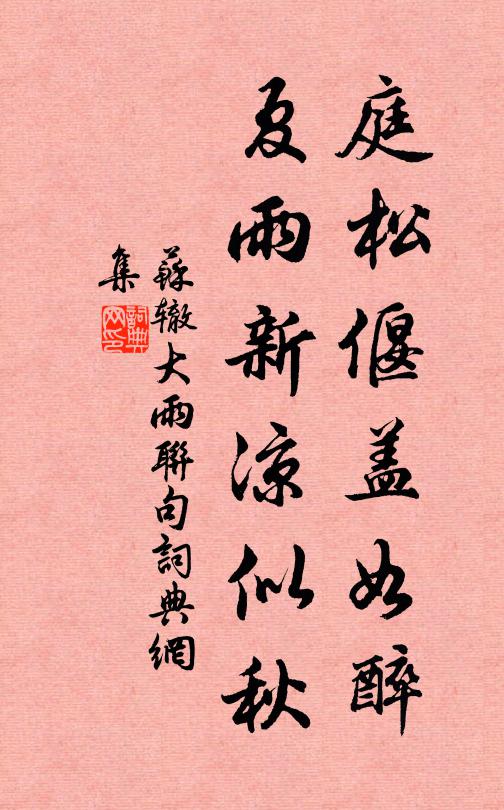 庭松偃盖如醉
夏雨新凉似秋
蘇辙大雨聯句詞典網
集
詞典
网印